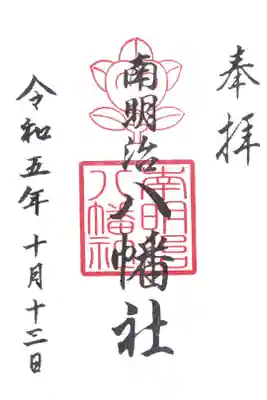 奉拝
南明治八幡社
南明治八幡社
令和五年十月十三日